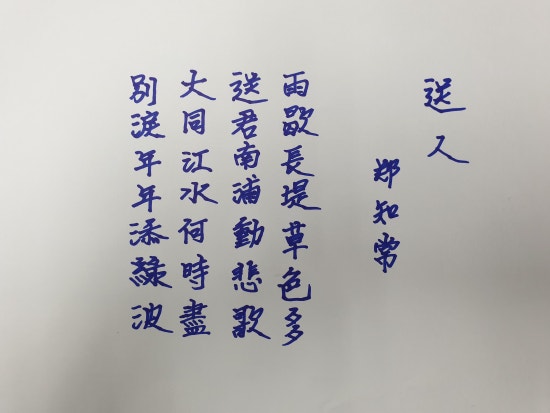 送人
郑知常
雨歇長堤草色多
送君南浦動悲歌
大同江水何時盡
別淚年年添綠波